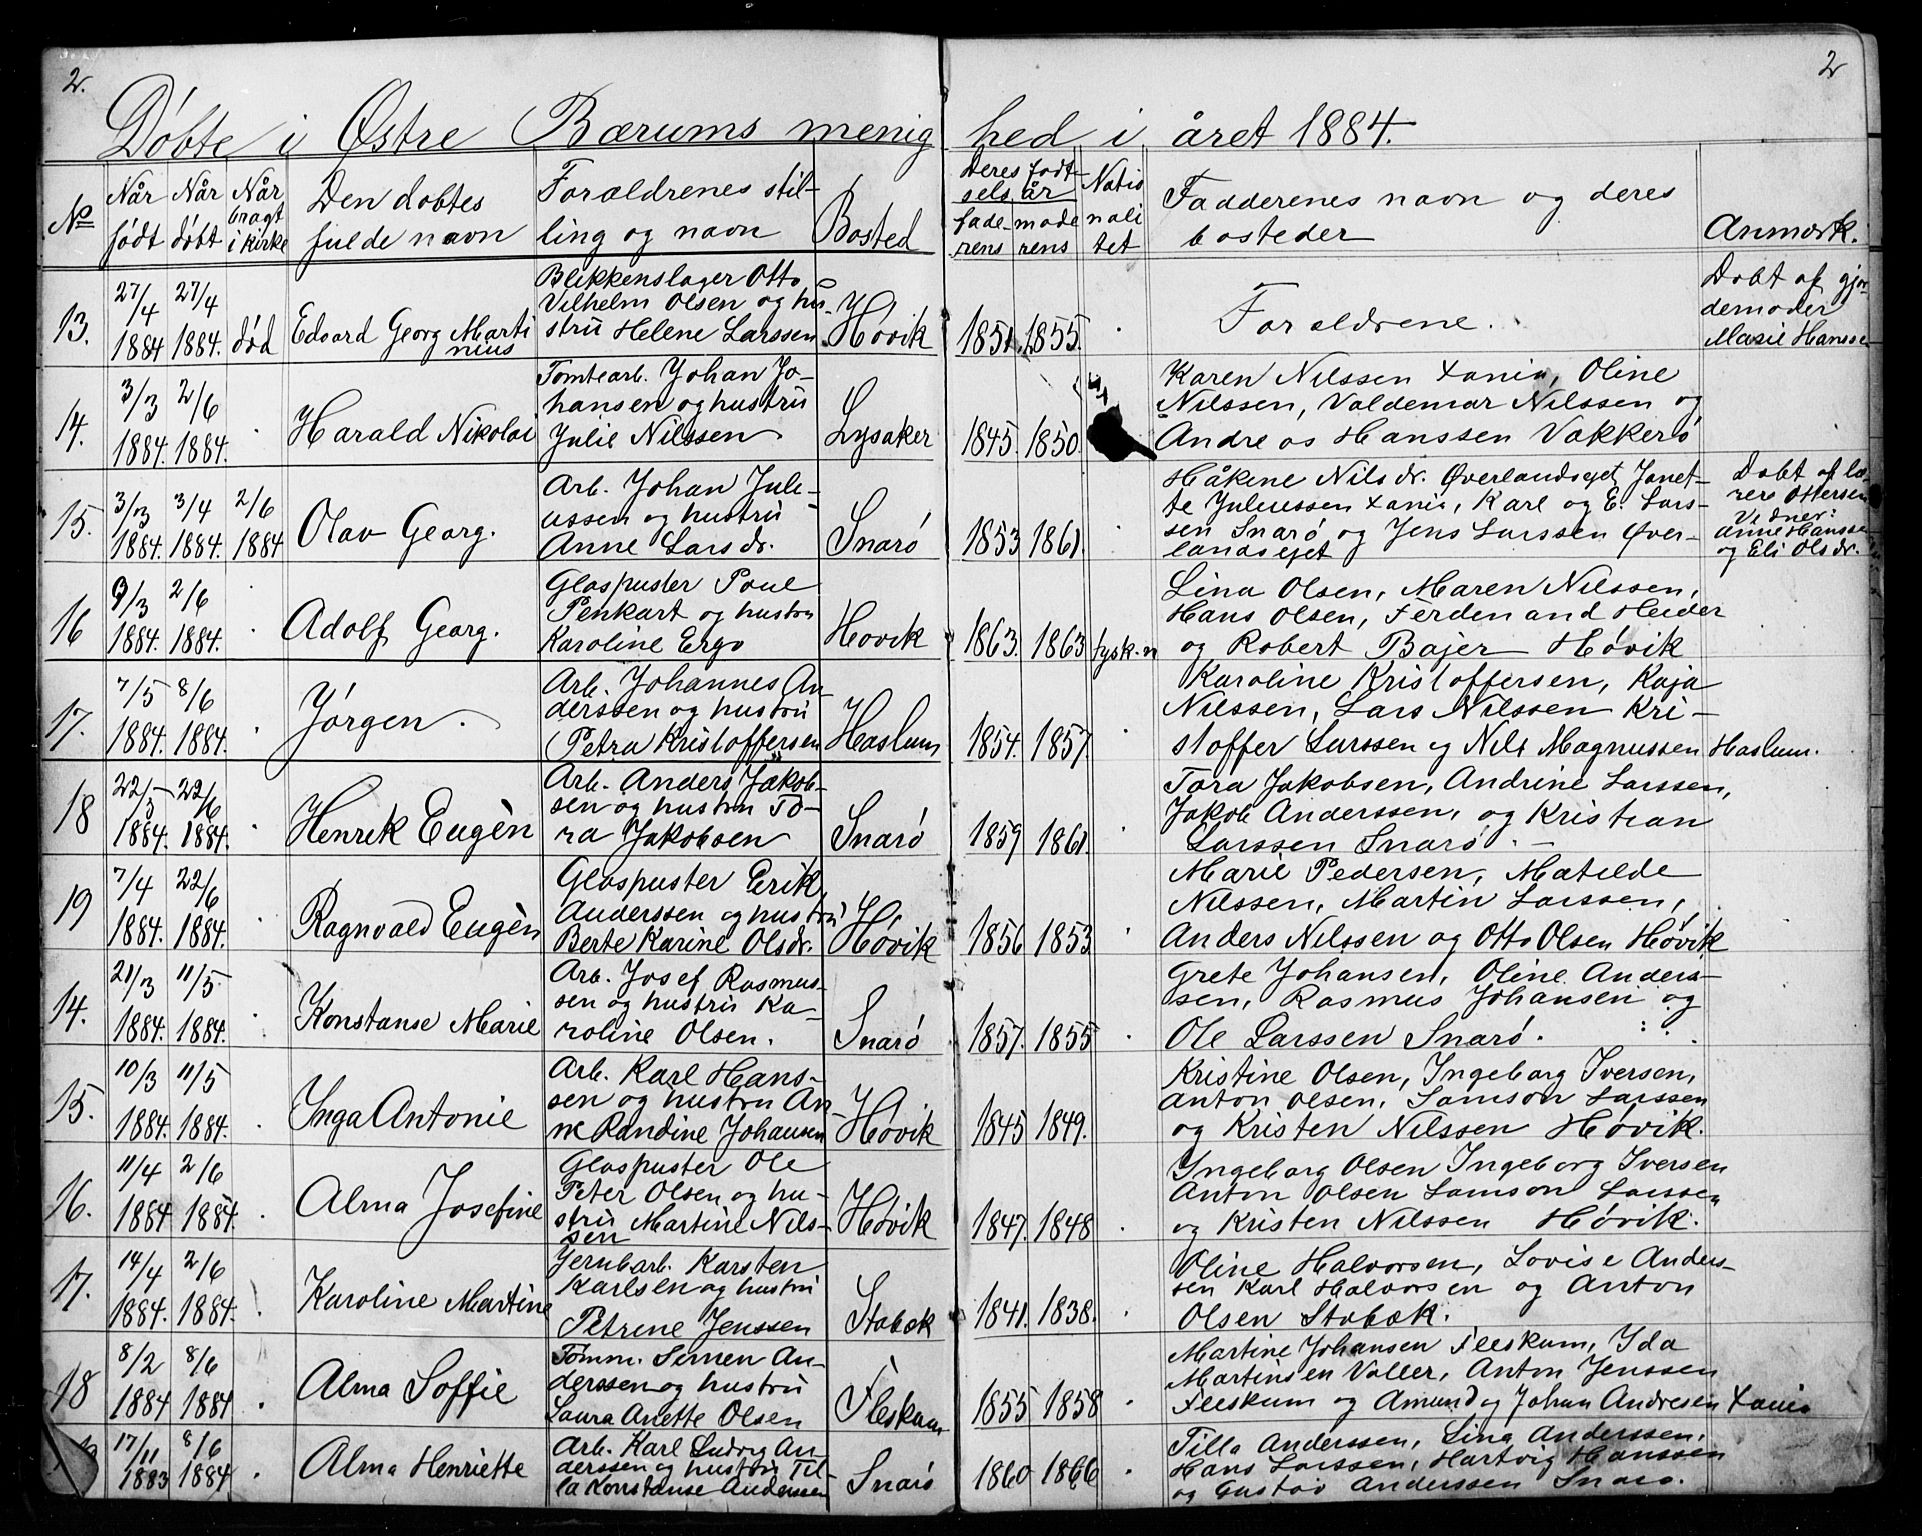 2.
2
Döbte i Østre Bærums menighed i året 1884.
No
Når födt
Når döbt
Når bragt i kirke
Den döbtes fulde navn
Forældrenes stilling og navn
Bosted
Deres födselsår
faderens
moderens
Nationalitet
Faddernes navn og deres bosteder
Anmærk.
13. 27/4 1884 27/4 1884. död Edvard Georg Martinius
Blikkenslager Otto
Vilhelm Olsen og hu-
stru Helene Larssen
Hövik 1851. 1855.
Forældrene.
Döbt af gjor-
demoder
Marie Hanssen
14. 3/3 1884. 2/6 1884. Harald Nikolai
Tomtearb. Johan Jo-
hansen og hustru
Julie Nilssen
Lysaker 1845. 1850.
Karen Nilssen Xania, Oline
Nilssen, Valdemar Nilssen og
Andreas Hanssen Vækkerö
15. 3/3 1884. 3/4 1884. 2/6 1884 Olav Georg.
Arb. Johan Juli-
ussen og hustru
Anne Larsdr.
Snarö 1853 1861.
Håkene Nilsdr. Øverlandsejet Janet-
te Juliussen Xania, Karl og E. Lars-
sen Snarö og Jens Larssen Øver-
landsejet
Döbt af læ-
rere Ottersen
Vidner:
Anne Hanssen
og Eli Olsdr.
16 9/3 1884. 2/6 1884. Adolf Georg.
Glaspuster Paul
Penkart og hustru
Karoline Ergo
Hövik 1863. 1863 tysk.
Lina Olsen, Maren Nilssen,
Hans Olsen, Ferdenand Heider
og Robert Bajer Hövik
17. 7/5 1884. 8/6 1884. Jörgen.
Arb. Johannes An-
derssen og hustru
Petra Kristoffersen
Haslum 1854. 1857.
Karoline Kristoffersen, Kaja
Nilssen, Lars Nilssen Kri-
stoffer Larssen og Nils Magnussen Haslum.
18 22/5 1884. 22/6 1884. Henrik Eugèn
Arb. Anders Jakob-
sen og hustru To-
ra Jakobsen
Snarö 1859 1861.
Tora Jakobsen, Andrine Larssen,
Jakob Anderssen, og Kristian
Larssen Snarö.
19 7/4 1884. 22/6 1884. Ragnvald Eugèn
Glaspuster Erik
Anderssen og hustru
Berte Karine Olsdr.
Hövik 1856 1853
Marie Pedersen, Matilde
Nilssen, Martin Larssen,
Anders Nilssen og Otto Olsen Hövik
14. 21/3 1884. 11/5 1884. Konstanse Marie
Arb. Josef Rasmus-
sen og hustru Ka-
roline Olsen.
Snarö 1857. 1855
Grete Johansen, Oline Anders-
sen, Rasmus Johansen og
Ole Larssen Snarö.
15. 10/3 1884. 11/5 1884. Inga Antonie
Arb. Karl Hans-
sen og hustru An-
ne Randine Johansen
Hövik 1845 1849.
Kristine Olsen, Ingeborg Iversen,
Anton Olsen, Samson Larssen
og Kristen Nilssen Hövik.
16. 11/4 1884 2/6 1884. Alma Josefine
Glaspuster Ole
Peter Olsen og hu-
stru Martine Nils-
sen
Hövik 1847. 1848
Ingeborg Olsen Ingeborg Iversen
Anton Olsen Samson Larssen
og Kristen Nilssen Hövik.
17. 14/4 1884. 2/6 1884. Karoline Martine
Jernbarb. Karsten
Karlsen og hustru
Petrine Jenssen
Stabæk 1841. 1838.
Oline Halvorsen, Lovise Anders-
sen Karl Halvorsen og Anton
Olsen Stabæk.
18 8/2 1884 8/6 1884 Alma Soffie
Tömm. Simen An-
derssen og hustru
Laura Anette Olsen
Fleskum 1855 1858
Martine Johansen Fleskum, Ida
Martinsen Voller, Anton Jenssen
Fleskum og Amund og Johan Andresen Xania
17/11 1883 8/6 1884 Alma Henriette
Arb. Karl Ludvig An-
derssen og hustru Til-
la Konstanse Anderssen
Snarö 1860 1866
Tilla Anderssen, Lina Anderssen,
Hans Larssen, Hartvig Hanssen
og Gustav Anderssen Snarö.